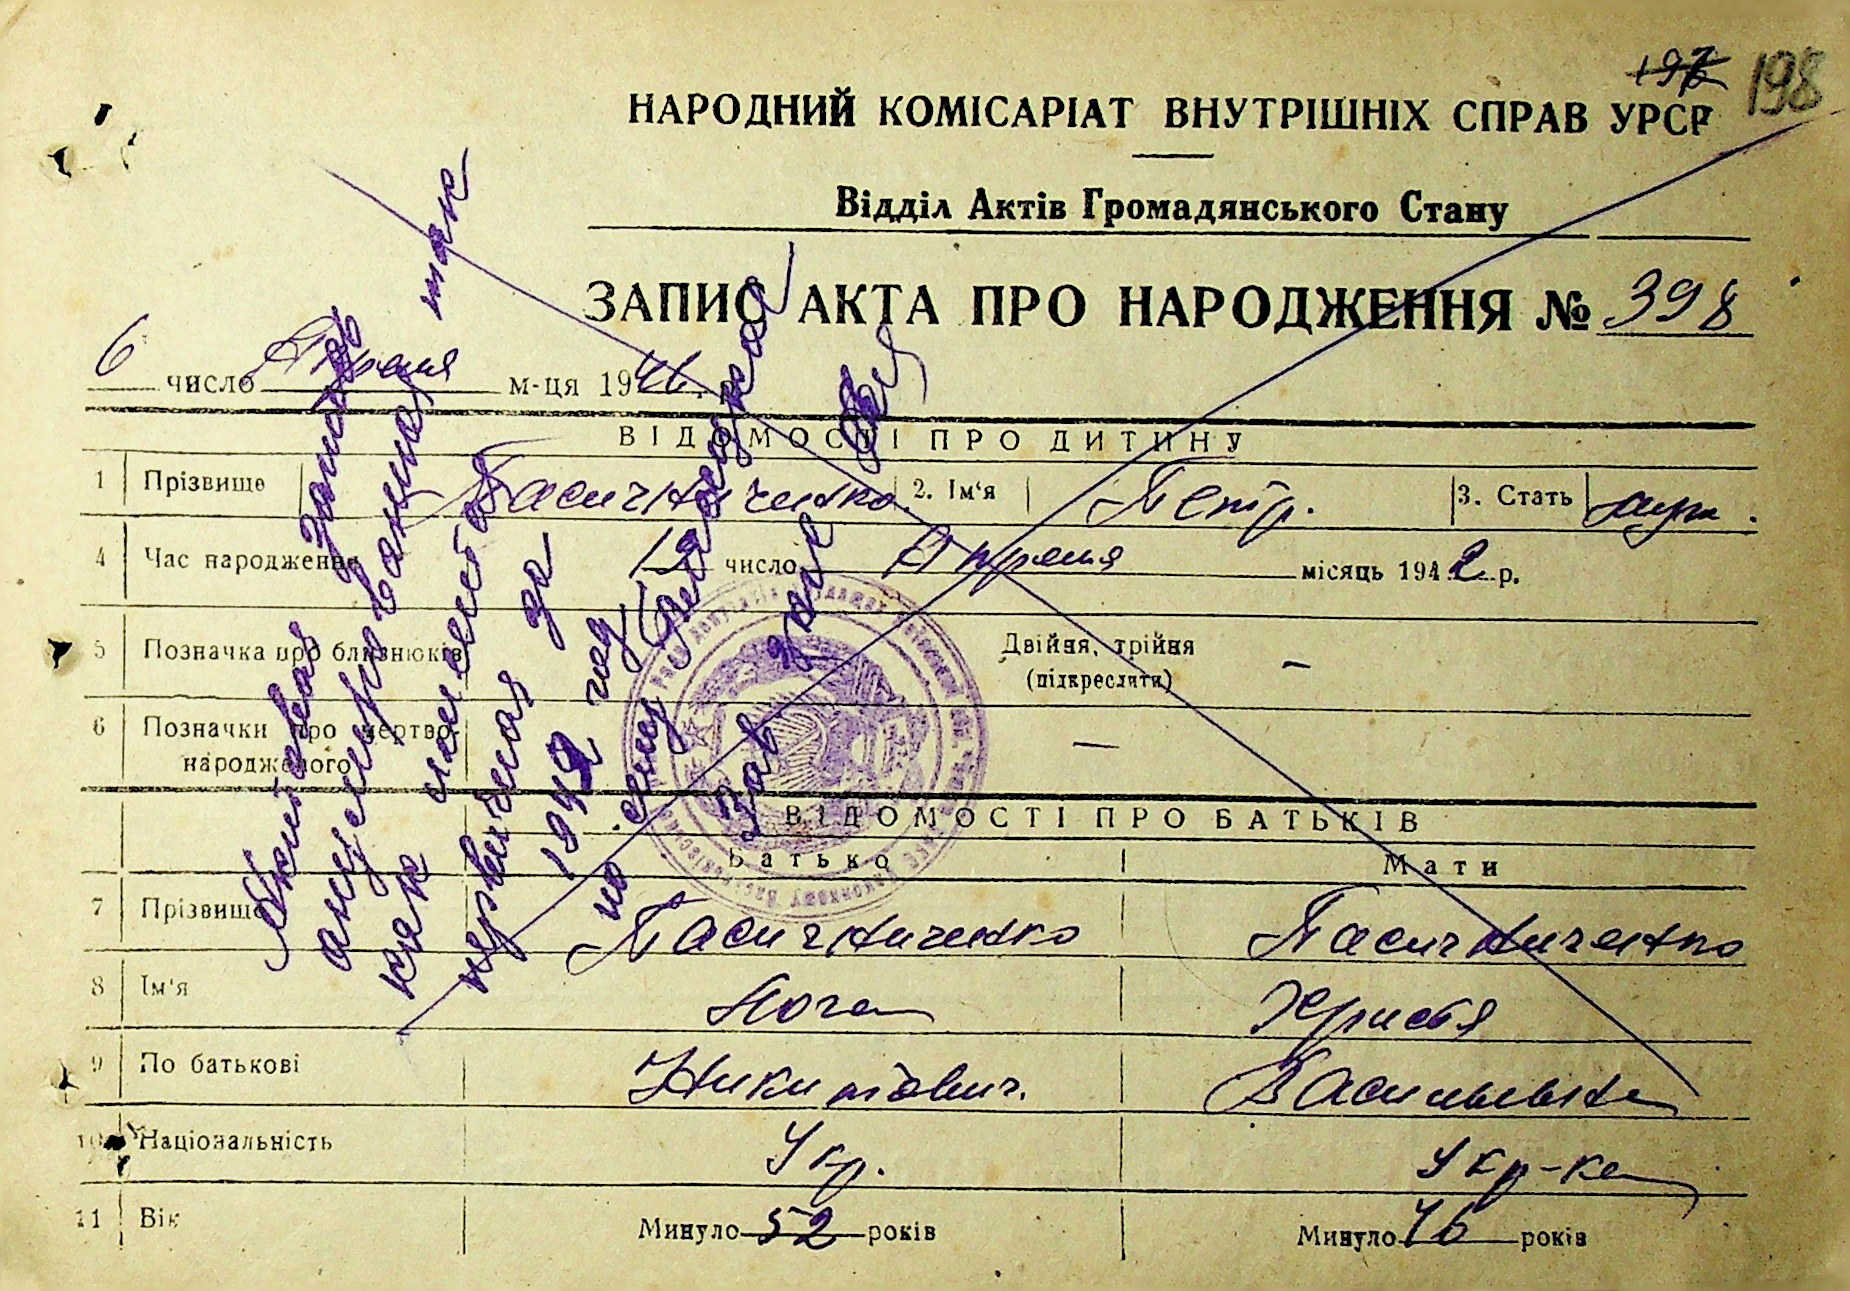 197 198
НАРОДНИЙ КОМІСАРІАТ ВНУТРІШНІХ СПРАВ УРСР
Відділ Актів Громадянського Стану
ЗАПИС АКТА ПРО НАРОДЖЕННЯ № 398
6 число Апреля м-ця 1946 р.
ВІДОМОСТІ ПРО ДИТИНУ
1 Прізвище Пасичниченко 2. Ім'я Петр. 3. Стать муж.
4 Час народження 12 число Апреля місяць 1942 р.
5 Позначка про близнюків Двійня, трійня –
(підкреслити)
6 Позначки про мертво- —
народженого
ВІДОМОСТІ ПРО БАТЬКІВ
Батько Мати
7 Прізвище Пасичниченко Пасичниченко
8 Ім'я Христя
9 По батькові Никитович. Васильевна
10 Національність Укр. Укр-ка
11 Вік Минуло 52 років Минуло 46 років
Актовая запись
анулирована, так
как имеется
первичная за
1942 год
по селу
Зав загс